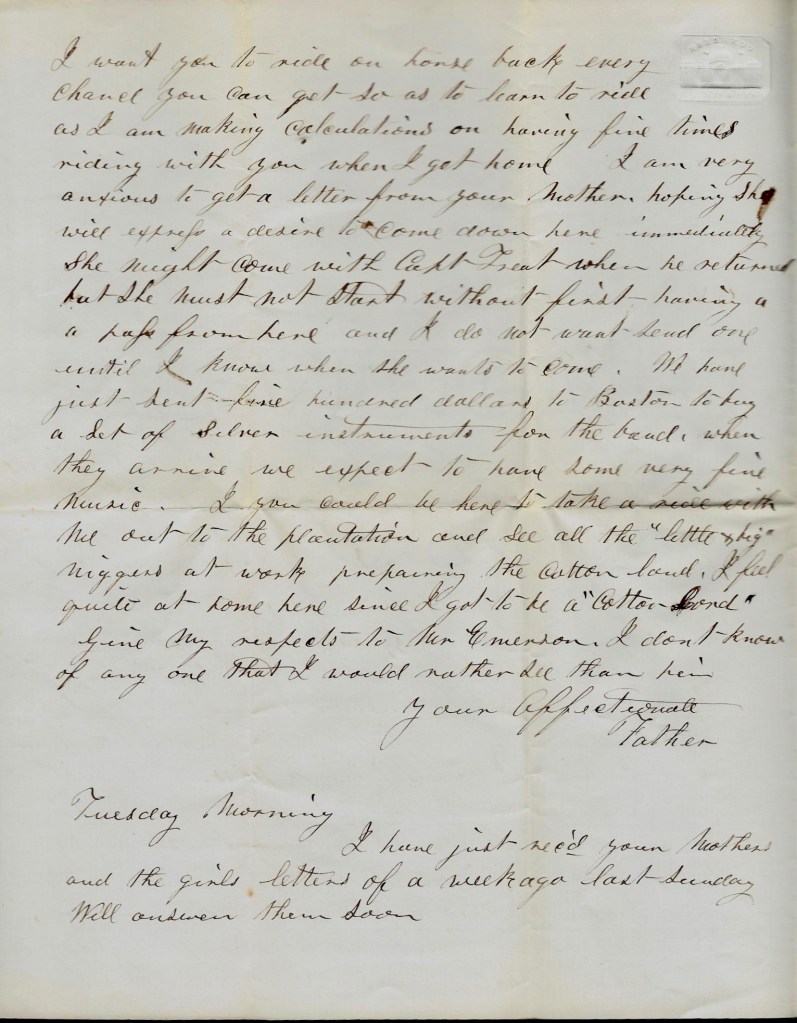 I want you to ride on horse back every
chance you can get so as to learn to ride
as I am making calculations on having fine times
riding with you when I get home I am very
anxious to get a letter from your Mother, hoping she
will express a desire to come down here immediately
She might come with Capt Treat when he returned
but she must not start without first having a
a pass from here and I do not want send one
until I know when she wants to come. We have
just sent five hundred dollars to Boston to buy
a set of silver instruments for the band, when
they arrive we expect to have some very fine
music. I you could be here to take a ride with
me out to the plantation and see all the "little & big"
niggers at work preparing the cotton land. I feel
quite at home here since I got to be a "Cotton Lord"
Give my respects to Mr Emerson. I dont know
of any one that I would rather see than him
Your Affectionate
Father
Tuesday Morning
I have just rec'd your Mothers
and the girls letters of a week ago last Sunday
Will answer them soon